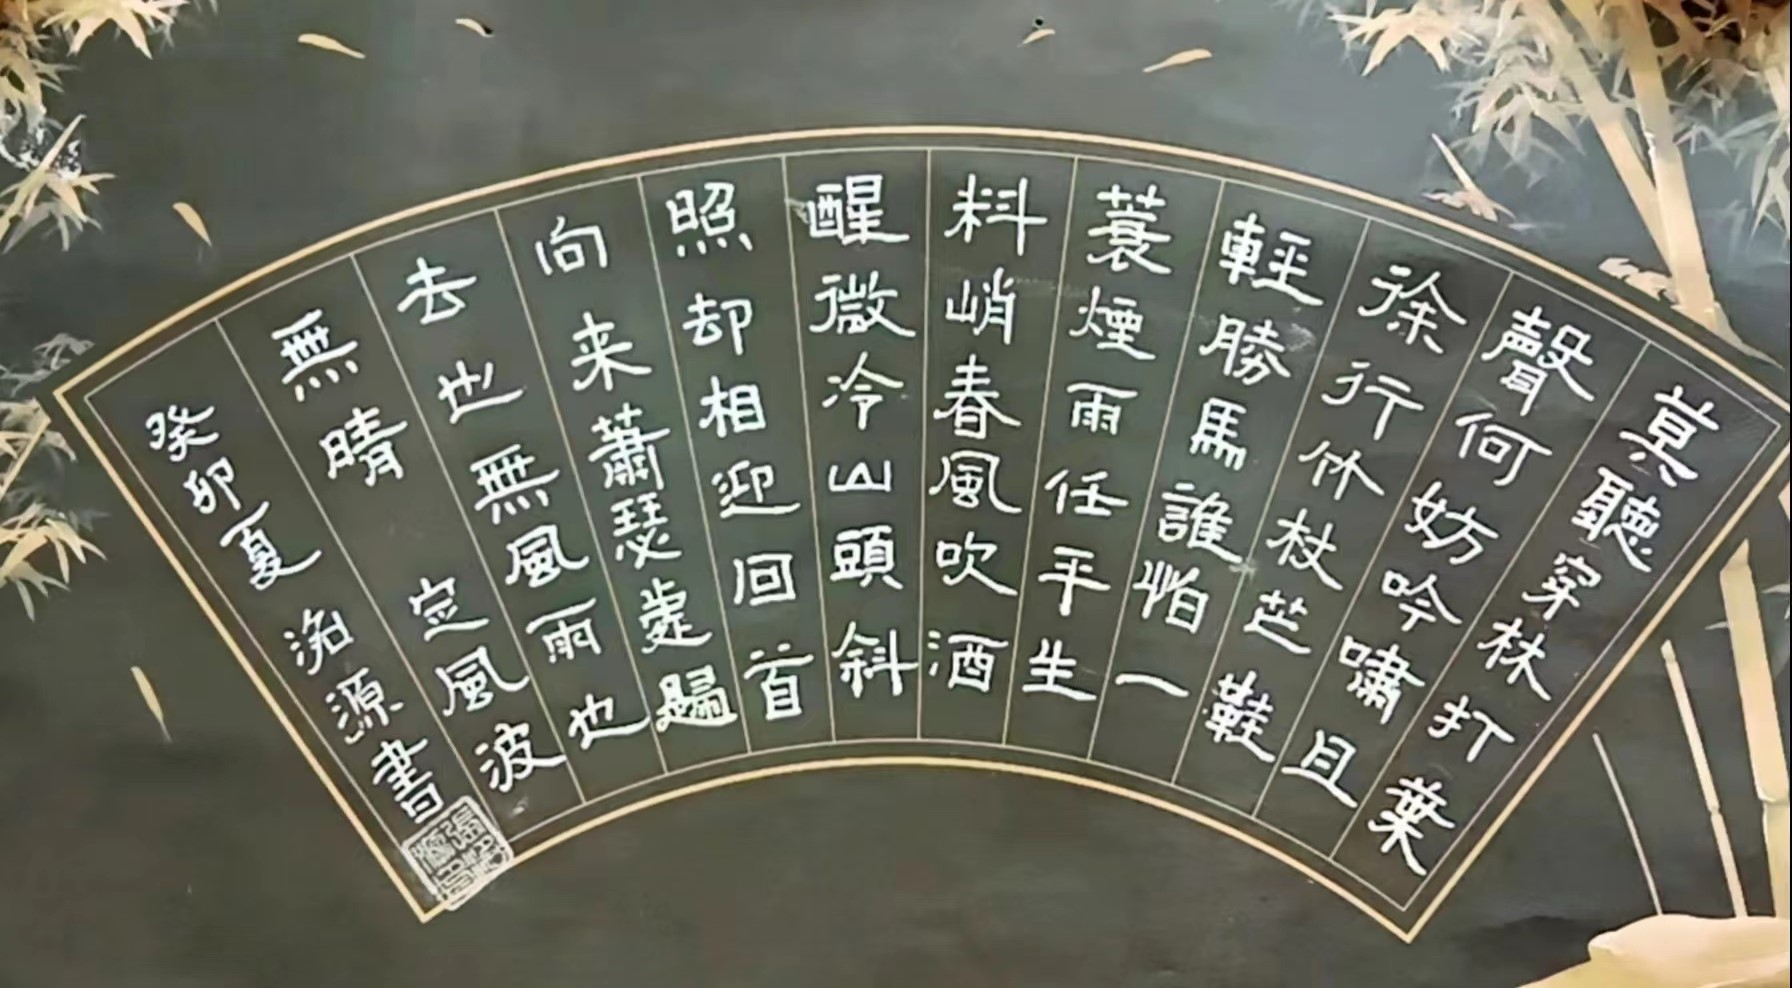 莫聽穿林打葉
聲何妨吟嘯且
徐行竹杖芒鞋
輕勝馬誰怕一
蓑煙雨任平生
料峭春風吹酒
醒微冷山頭斜
照却相迎回首
向来蕭瑟處歸
去也無風雨也
無晴 定風波
癸卯夏 洺源書